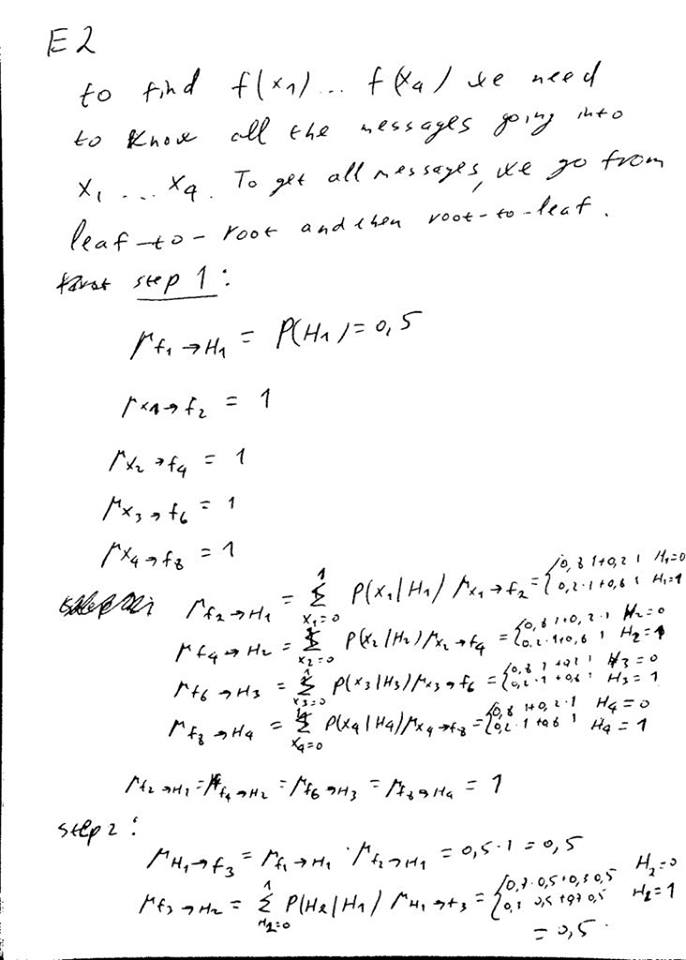 E2
to find f(x1)... f(x4) we need
to know all the messages going into
x1 ... x4. To get all messages, we go from
leaf-to-root and then root-to-leaf.
step 1:
μf1→H1 = P(H1) = 0,5
μx1→f2 = 1
μx2→f4 = 1
μx3→f6 = 1
μx4→f8 = 1
μf2→H1 = Σ_{x1=0}^{1} P(x1|H1) μx1→f2 = { 0,8·1+0,2·1 H1=0 0,2·1+0,8·1 H1=1
μf4→H2 = Σ_{x2=0}^{1} P(x2|H2) μx2→f4 = { 0,8·1+0,2·1 H2=0 0,2·1+0,8·1 H2=1
μf6→H3 = Σ_{x3=0}^{1} P(x3|H3) μx3→f6 = { 0,8·1+0,2·1 H3=0 0,2·1+0,8·1 H3=1
μf8→H4 = Σ_{x4=0}^{1} P(x4|H4) μx4→f8 = { 0,8·1+0,2·1 H4=0 0,2·1+0,8·1 H4=1
μf2→H1 = μf4→H2 = μf6→H3 = μf8→H4 = 1
step 2:
μH1→f3 = μf1→H1 · μf2→H1 = 0,5·1 = 0,5
μf3→H2 = Σ_{H1=0}^{1} P(H2|H1) μH1→f3 = { 0,7·0,5+0,3·0,5 H2=0 0,3·0,5+0,7·0,5 H2=1
= 0,5.